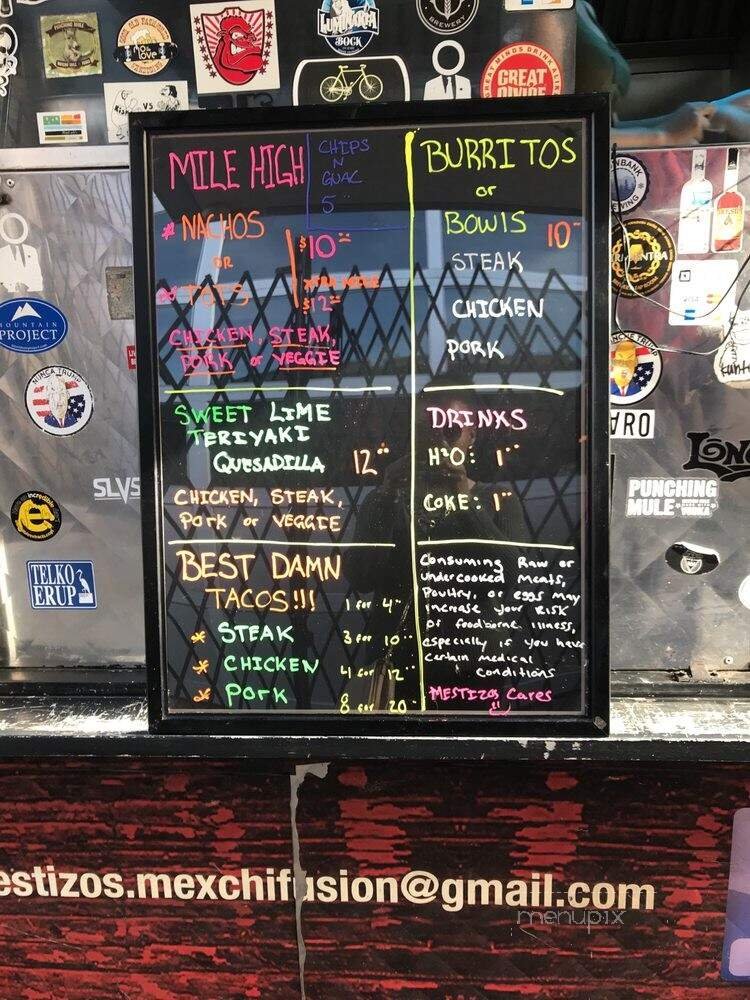 MILE HIGH
CHIPS
N
GUAC
5
* NACHOS
OR
* TOTS
$10
XTRA MILE
$12
CHICKEN, STEAK,
PORK or VEGGIE
SWEET LIME
TERIYAKI
QUESADILLA 12
CHICKEN, STEAK,
PORK or VEGGIE
BEST DAMN
TACOS!!!
* STEAK
* CHICKEN
* PORK
1 for 4
3 for 10
4 for 12
8 for 20
BURRITOS
or
BOWLS 10
STEAK
CHICKEN
PORK
DRINKS
H2O: 1
COKE: 1
Consuming Raw or
undercooked meats,
Poultry, or eggs may
increase your RISK
of foodborne illness,
especially if you have
certain medical
conditions
MESTIZOS Cares
estizos.mexchifusion@gmail.com
menupix
LUMINARIA
BOCK
BREWERY
GREAT MINDS DRINK
GREAT
DIVIDE
VS
MOUNTAIN
PROJECT
NUNCA TRUMP
SLVS
incredible
e
TELKO
ERUP
PUNCHING
MULE
VISA